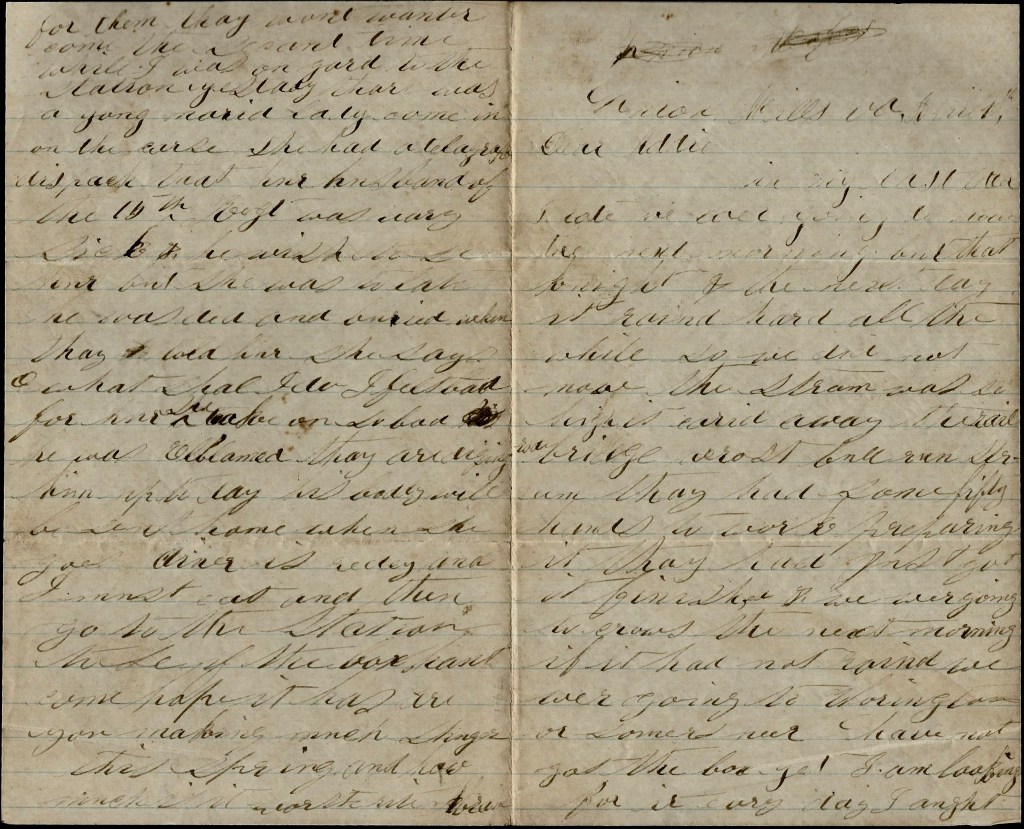 for them thay wont wanter
come the secant time
while I was on gard to the
Station yestday thare was
a yong marid lady come in
on the carse she had a telagraf
dispach that hur husband of
the 10th Regt was vary
Sick & he wish to se
hur but she was to late
he was ded and buried when
thay told hur she says
O what shal I do I felt bad
for hur she toke on so bad
he was Elbamed thay are
him up to day his body will
be sent home when she
goes diner is redey and
I must eat and then
go to the Station
these of the box
come hope it has are
you making much Shuger
this Spring and how
much is it worth
Union Mills va
Dear Addie
in my last letter
I rote we wer going to
the next morning but that
night & the next day
it raind hard all the
while so we did not
move the stream was so
high it carid away the rail
road bridge crost bull run
thay had some fifty
hands to work preparing
it thay had just got
it finished & we wer going
to cross the next morning
if it had not raind we
wer going to
or somers near I have not
got the box yet I am looking
for it evry day I aught